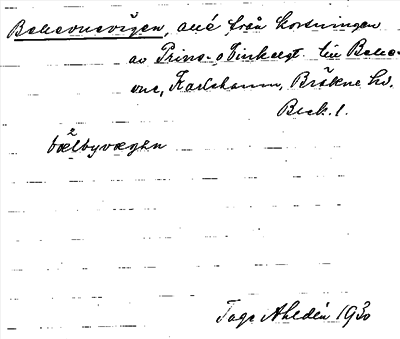 Bellevuevägen, allé från korsningen
av Prins- o Vinkelgt. till Belle-
vue, Karlshamn, Bräkne hd.
Blek. l.
2
bælbyvægen
Tage Ahldén 1930